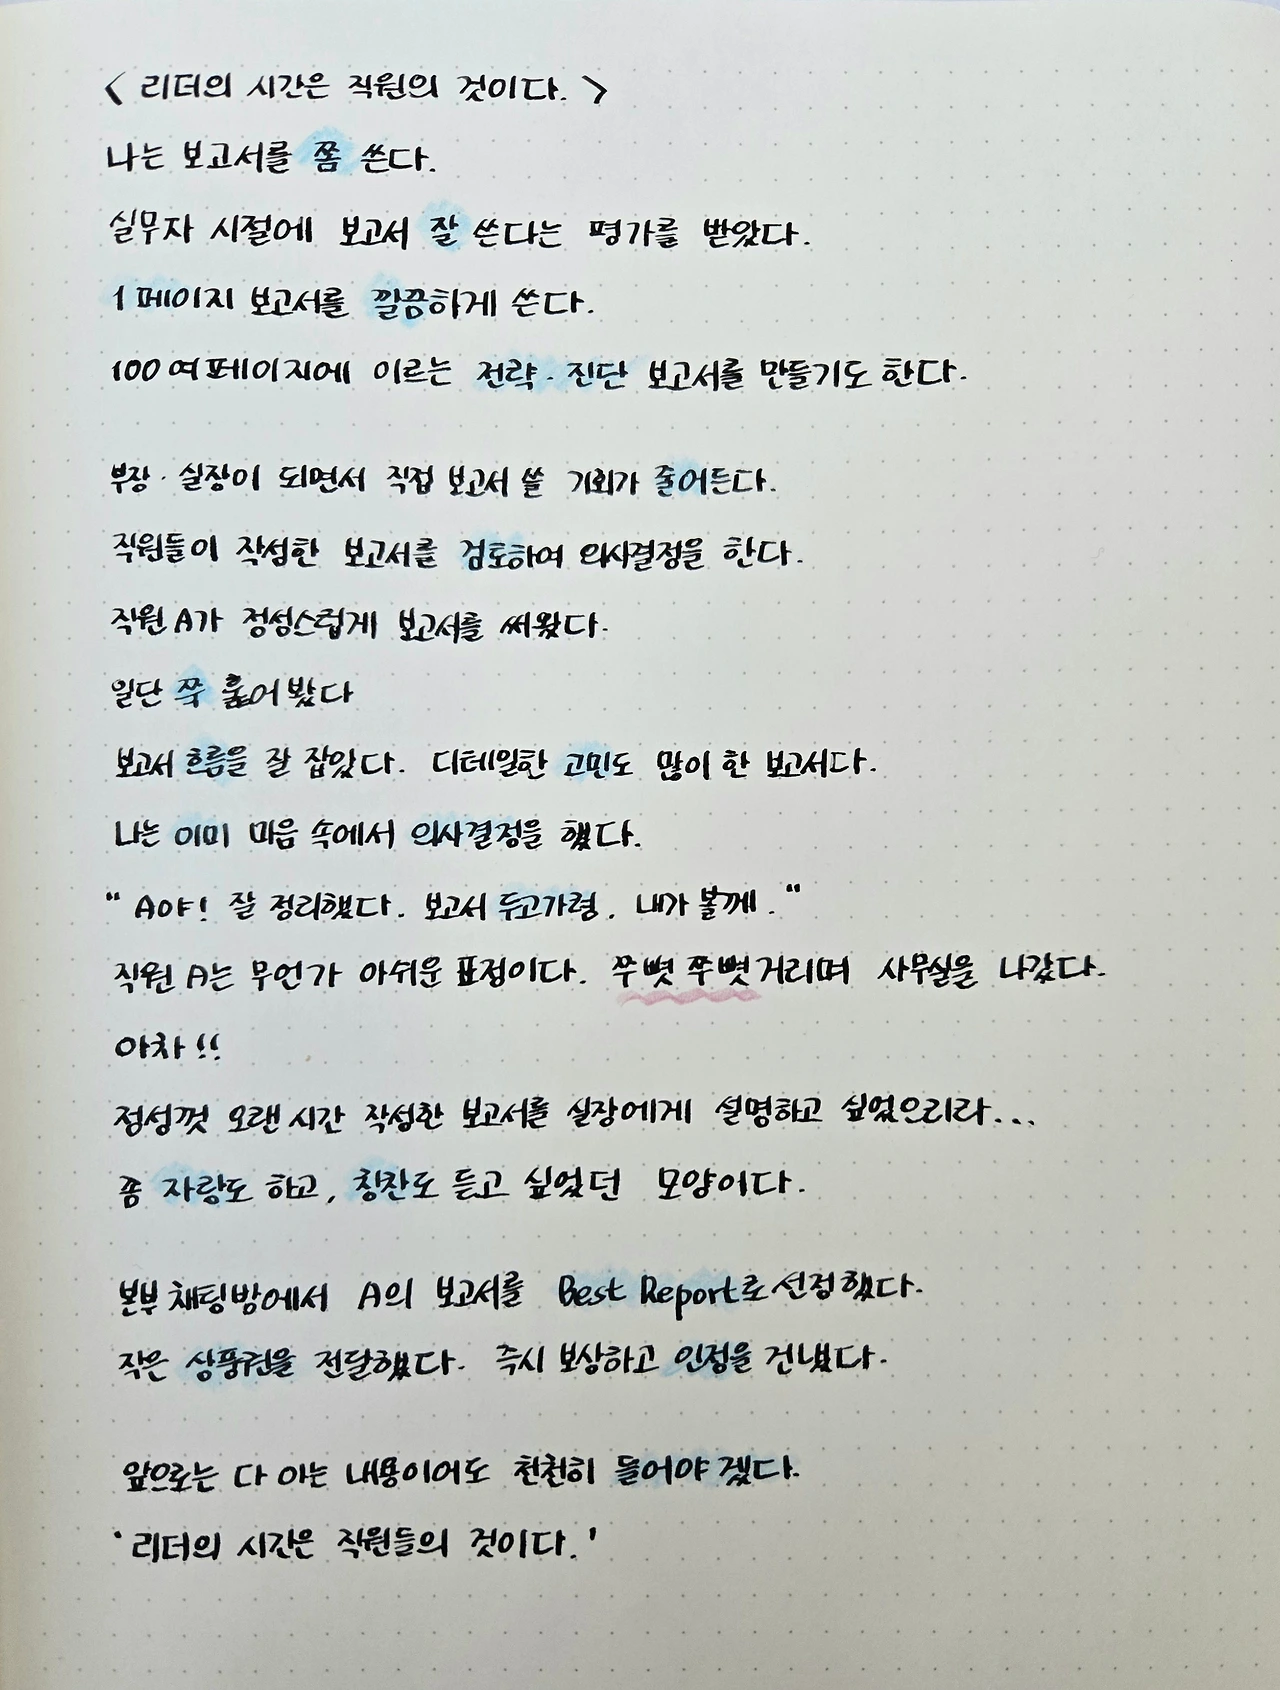 < 리더의 시간은 직원의 것이다. >
나는 보고서를 쫌 쓴다.
실무자 시절에 보고서 잘 쓴다는 평가를 받았다.
1 페이지 보고서를 깔끔하게 쓴다.
100여 페이지에 이르는 전략·진단 보고서를 만들기도 한다.
부장·실장이 되면서 직접 보고서 쓸 기회가 줄어든다.
직원들이 작성한 보고서를 검토하여 의사결정을 한다.
직원 A가 정성스럽게 보고서를 써왔다.
일단 쭉 훑어 봤다
보고서 흐름을 잘 잡았다. 디테일한 고민도 많이 한 보고서다.
나는 이미 마음 속에서 의사결정을 했다.
“ A야! 잘 정리했다. 보고서 두고가렴. 내가 볼께. “
직원 A는 무언가 아쉬운 표정이다. 쭈뼛쭈뼛거리며 사무실을 나갔다.
아차!!
정성껏 오랜시간 작성한 보고서를 실장에게 설명하고 싶었으리라...
쫌 자랑도 하고, 칭찬도 듣고 싶었던 모양이다.
본부 채팅방에서 A의 보고서를 Best Report로 선정했다.
작은 상품권을 전달했다. 즉시 보상하고 인정을 건넸다.
앞으로는 다 아는 내용이어도 천천히 들어야겠다.
' 리더의 시간은 직원들의 것이다. '